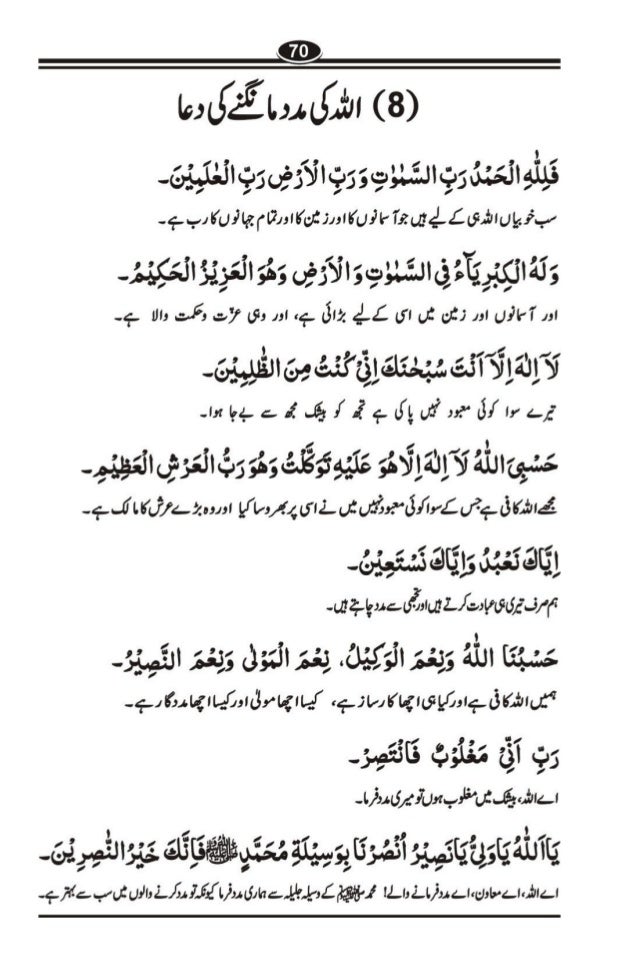 70
(8) اللہ کی مدد مانگنے کی دعا
فَلِلّٰهِ الْحَمْدُ رَبِّ السَّمٰوٰتِ وَ رَبِّ الْاَرْضِ رَبِّ الْعٰلَمِيْنَ۔
سب خوبیاں اللہ ہی کے لیے ہیں جو آسمانوں کا اور زمین کا اور تمام جہانوں کا رب ہے۔
وَ لَهُ الْكِبْرِيَآءُ فِي السَّمٰوٰتِ وَ الْاَرْضِ وَهُوَ الْعَزِيْزُ الْحَكِيْمُ۔
اور آسمانوں اور زمین میں اسی کے لیے بڑائی ہے، اور وہی عزّت وحکمت والا ہے۔
لَآ اِلٰهَ اِلَّآ اَنْتَ سُبْحٰنَكَ اِنِّيْ كُنْتُ مِنَ الظّٰلِمِيْنَ۔
تیرے سوا کوئی معبود نہیں پاکی ہے تجھ کو بیشک مجھ سے بےجا ہوا۔
حَسْبِيَ اللّٰهُ لَآ اِلٰهَ اِلَّا هُوَ عَلَيْهِ تَوَكَّلْتُ وَهُوَ رَبُّ الْعَرْشِ الْعَظِيْمِ۔
مجھے اللہ کافی ہے جس کے سوا کوئی معبود نہیں میں نے اسی پر بھروسا کیا اور وہ بڑے عرش کا مالک ہے۔
اِيَّاكَ نَعْبُدُ وَاِيَّاكَ نَسْتَعِيْنُ۔
ہم صرف تیری ہی عبادت کرتے ہیں اور تجھی سے مدد چاہتے ہیں۔
حَسْبُنَا اللّٰهُ وَنِعْمَ الْوَكِيْلُ، نِعْمَ الْمَوْلٰى وَنِعْمَ النَّصِيْرُ۔
ہمیں اللہ کافی ہے اور کیا ہی اچھا کارساز ہے، کیسا اچھا مولیٰ اور کیسا اچھا مددگار ہے۔
رَبِّ اَنِّيْ مَغْلُوْبٌ فَانْتَصِرْ۔
اے اللہ، بیشک میں مغلوب ہوں تو میری مدد فرما۔
يَا اَللّٰهُ يَا وَلِيُّ يَا نَصِيْرُ اُنْصُرْنَا بِوَسِيْلَةِ مُحَمَّدٍ ﷺ فَاِنَّكَ خَيْرُ النّٰصِرِيْنَ۔
اے اللہ، اے معاون، اے مدد فرمانے والے! محمد ﷺ کے وسیلہ جلیلہ سے ہماری مدد فرما کیونکہ تو مدد کرنے والوں میں سب سے بہتر ہے۔